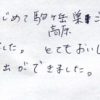 じめて駒ヶ岳
高原
した。とてもおいし
出ができました。